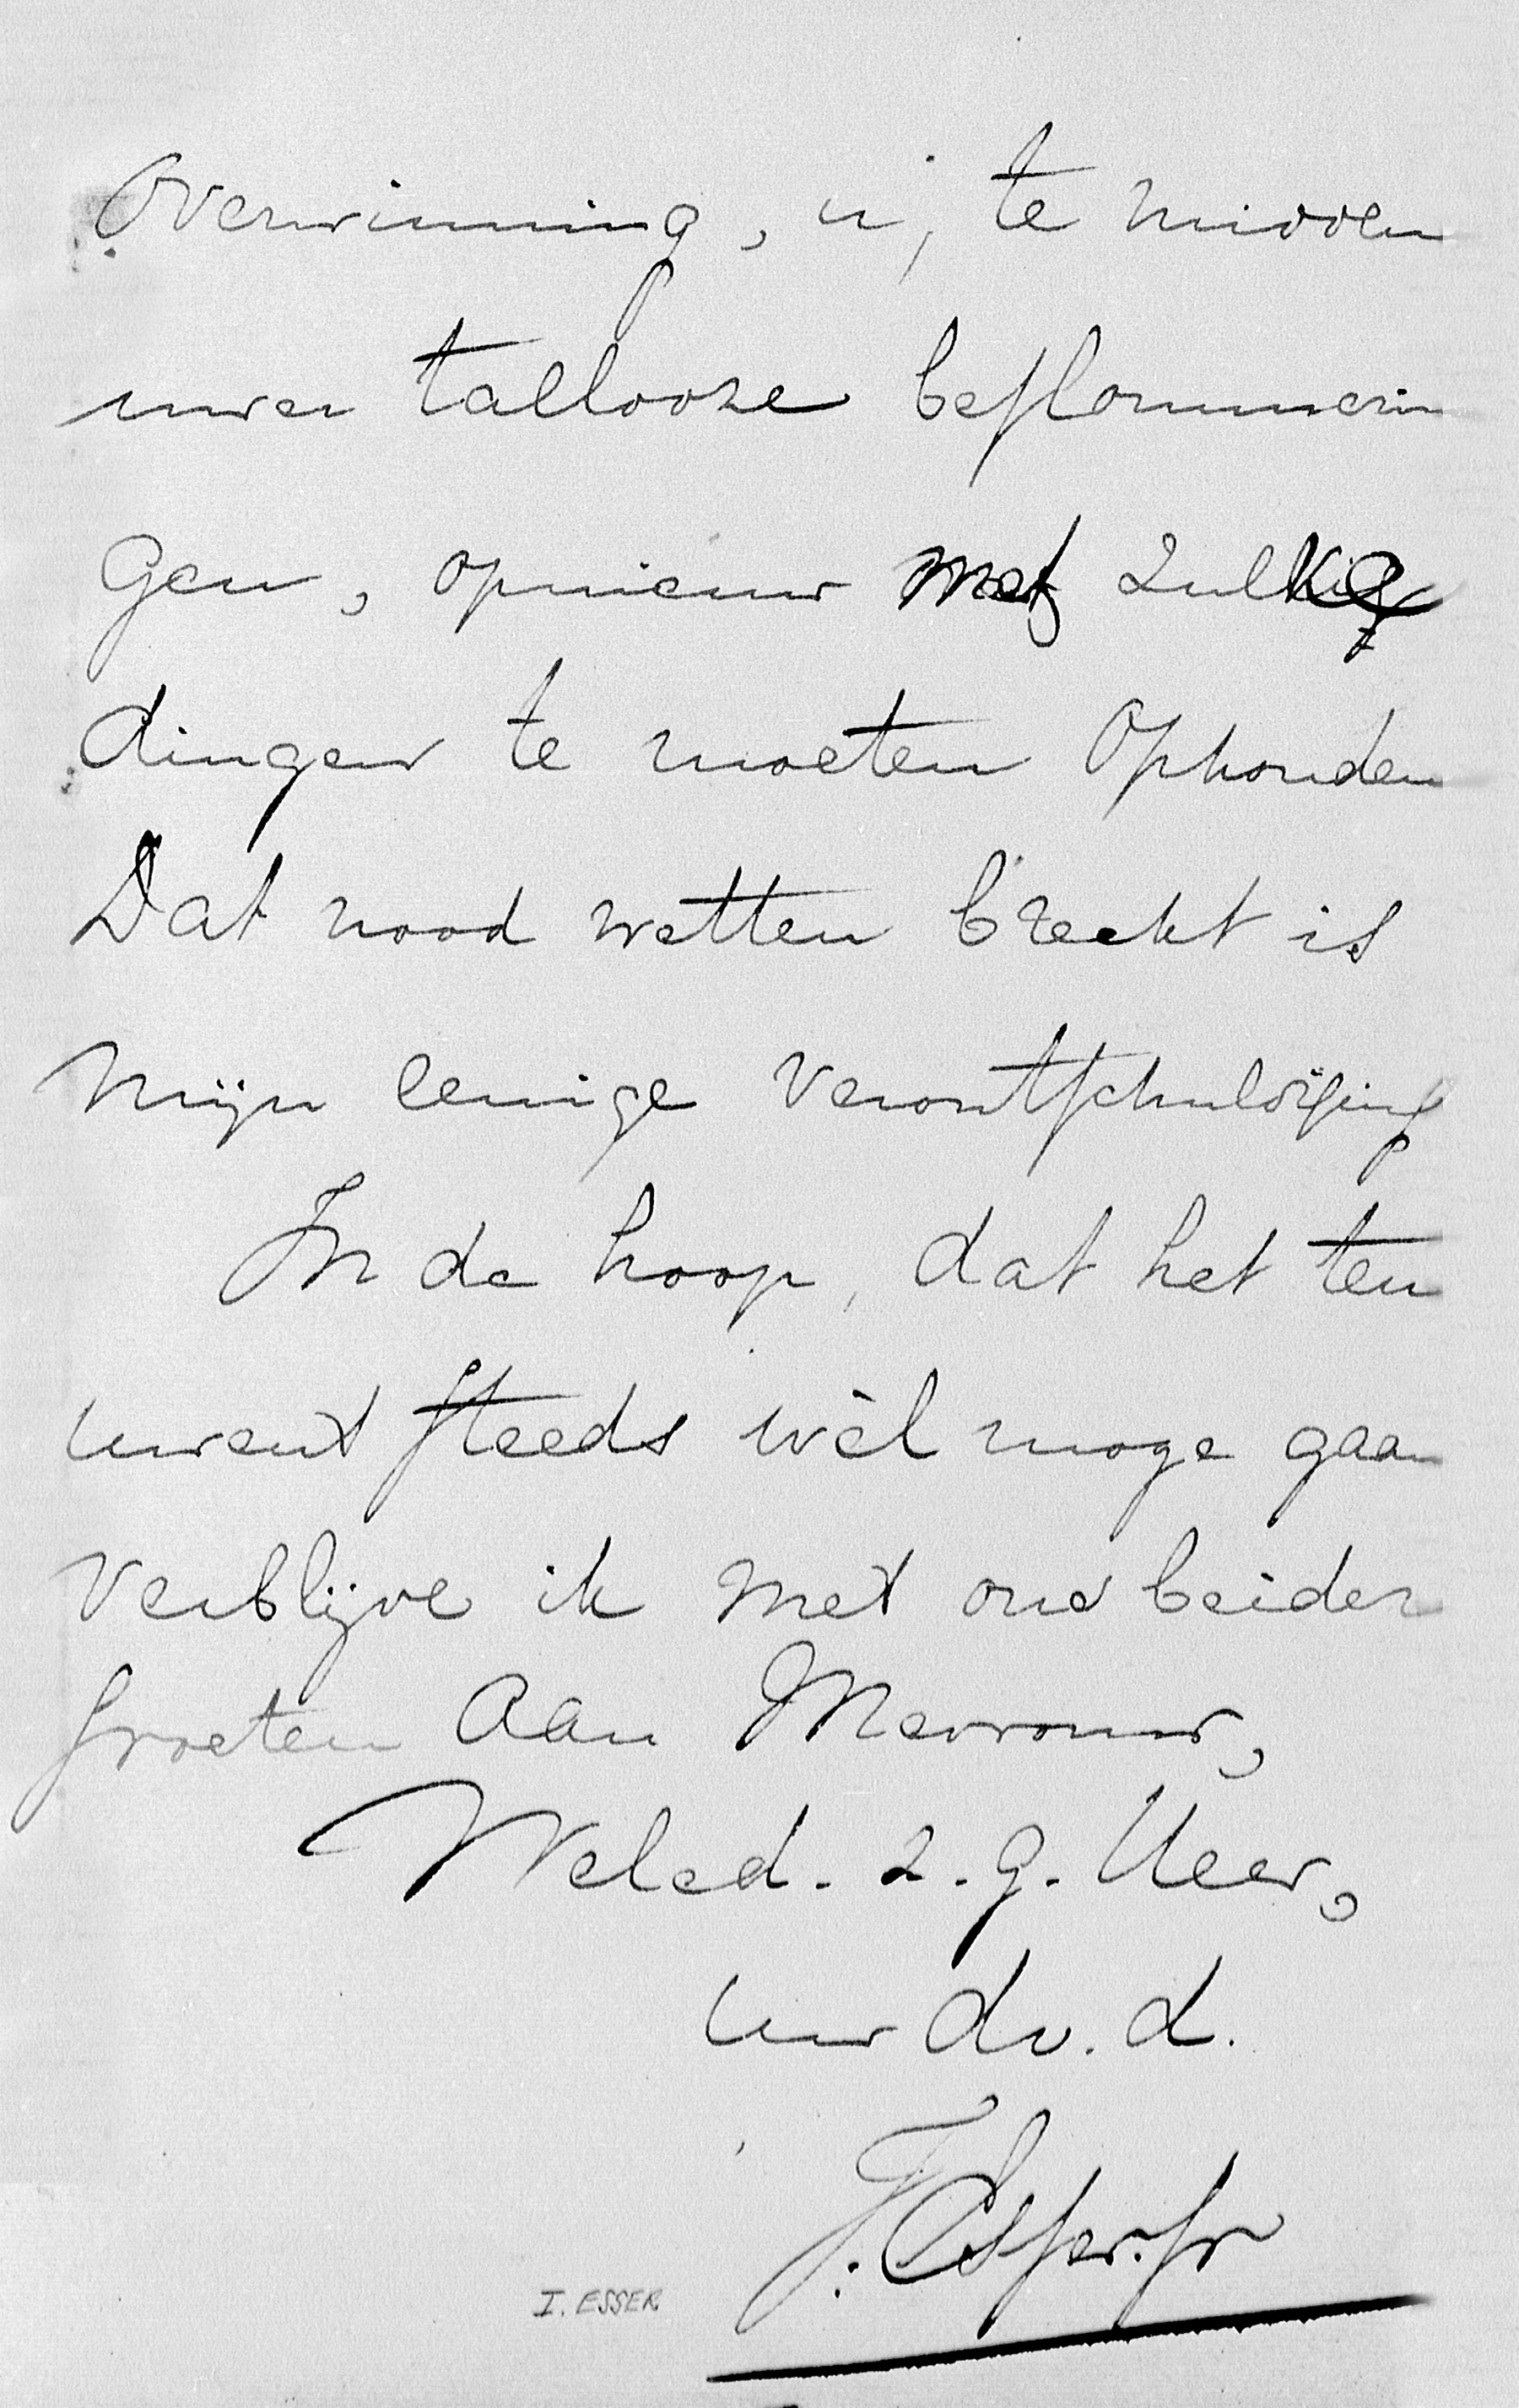 Overwinning, u, te midden
uwer tallooze beslommerin
gen, opnieuw met zulke
dingen te moeten ophouden
Dat nood wetten breekt is
mijn eenige verontschuldiging
In de hoop, dat het ten
uwent steeds wèl moge gaan
verblijve ik met ons beider
groeten aan Mevrouw,
Weled. z. g. Heer,
uw dv. d.
J. Esser Jr
I. ESSER